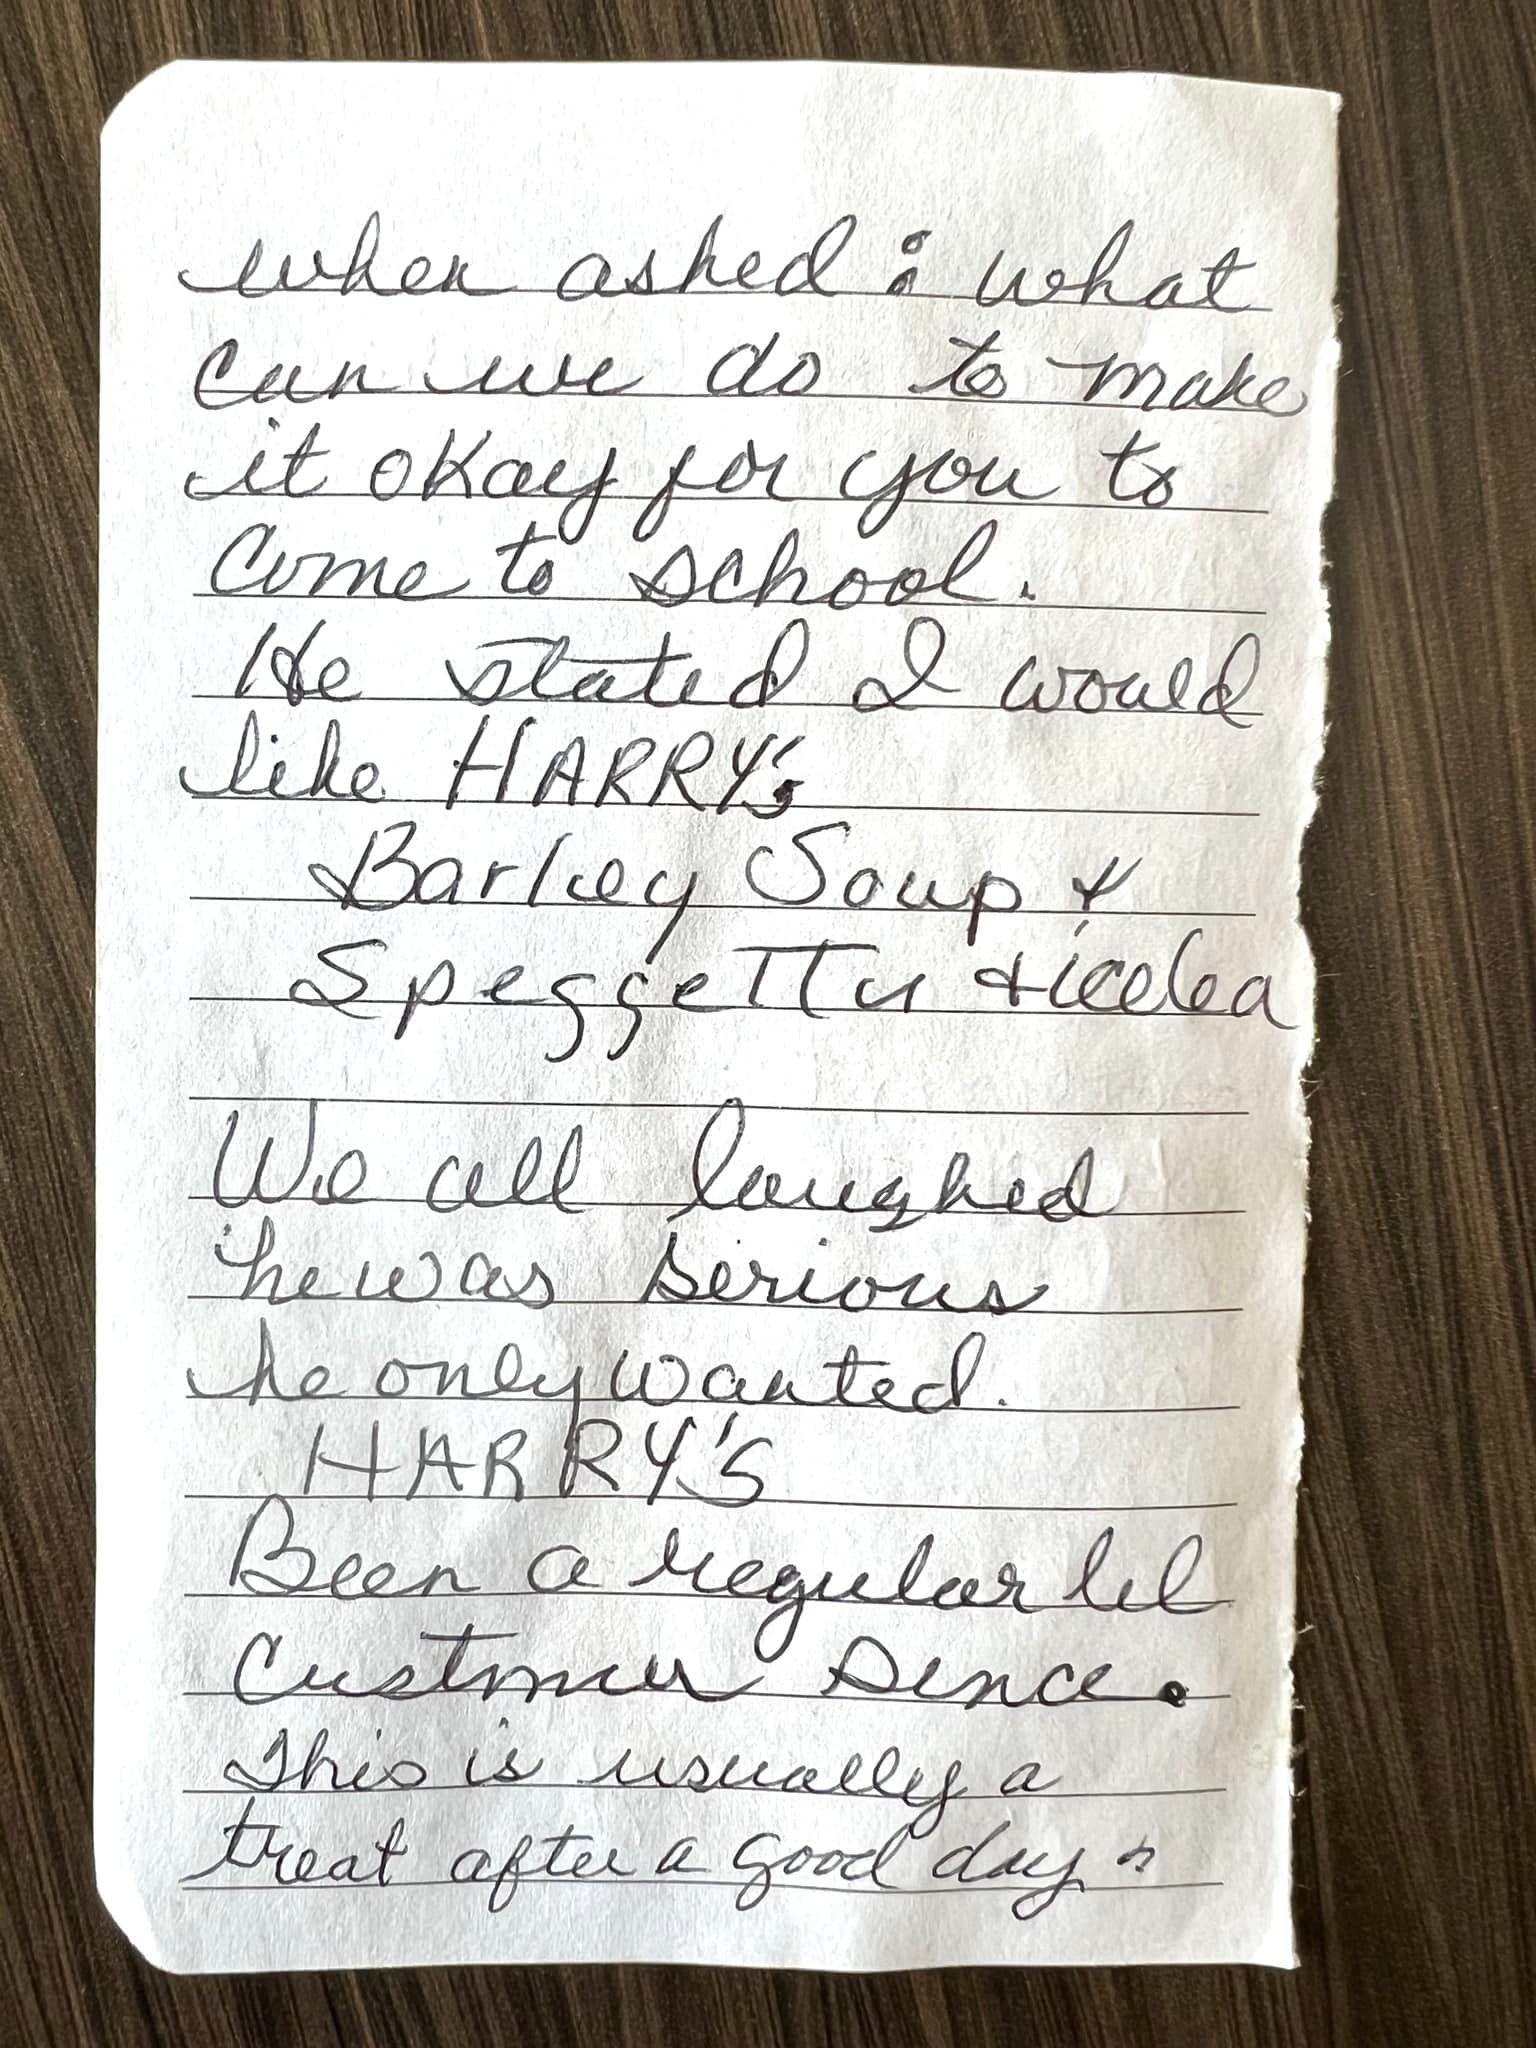 when asked : what
can we do to make
it okay for you to
come to school.
He stated I would
like HARRY's
Barley Soup &
Speggetti & icetea
We all laughed
he was serious
he only wanted.
HARRY'S
Been a regular lil
Customer sence.
This is usually a
treat after a good day